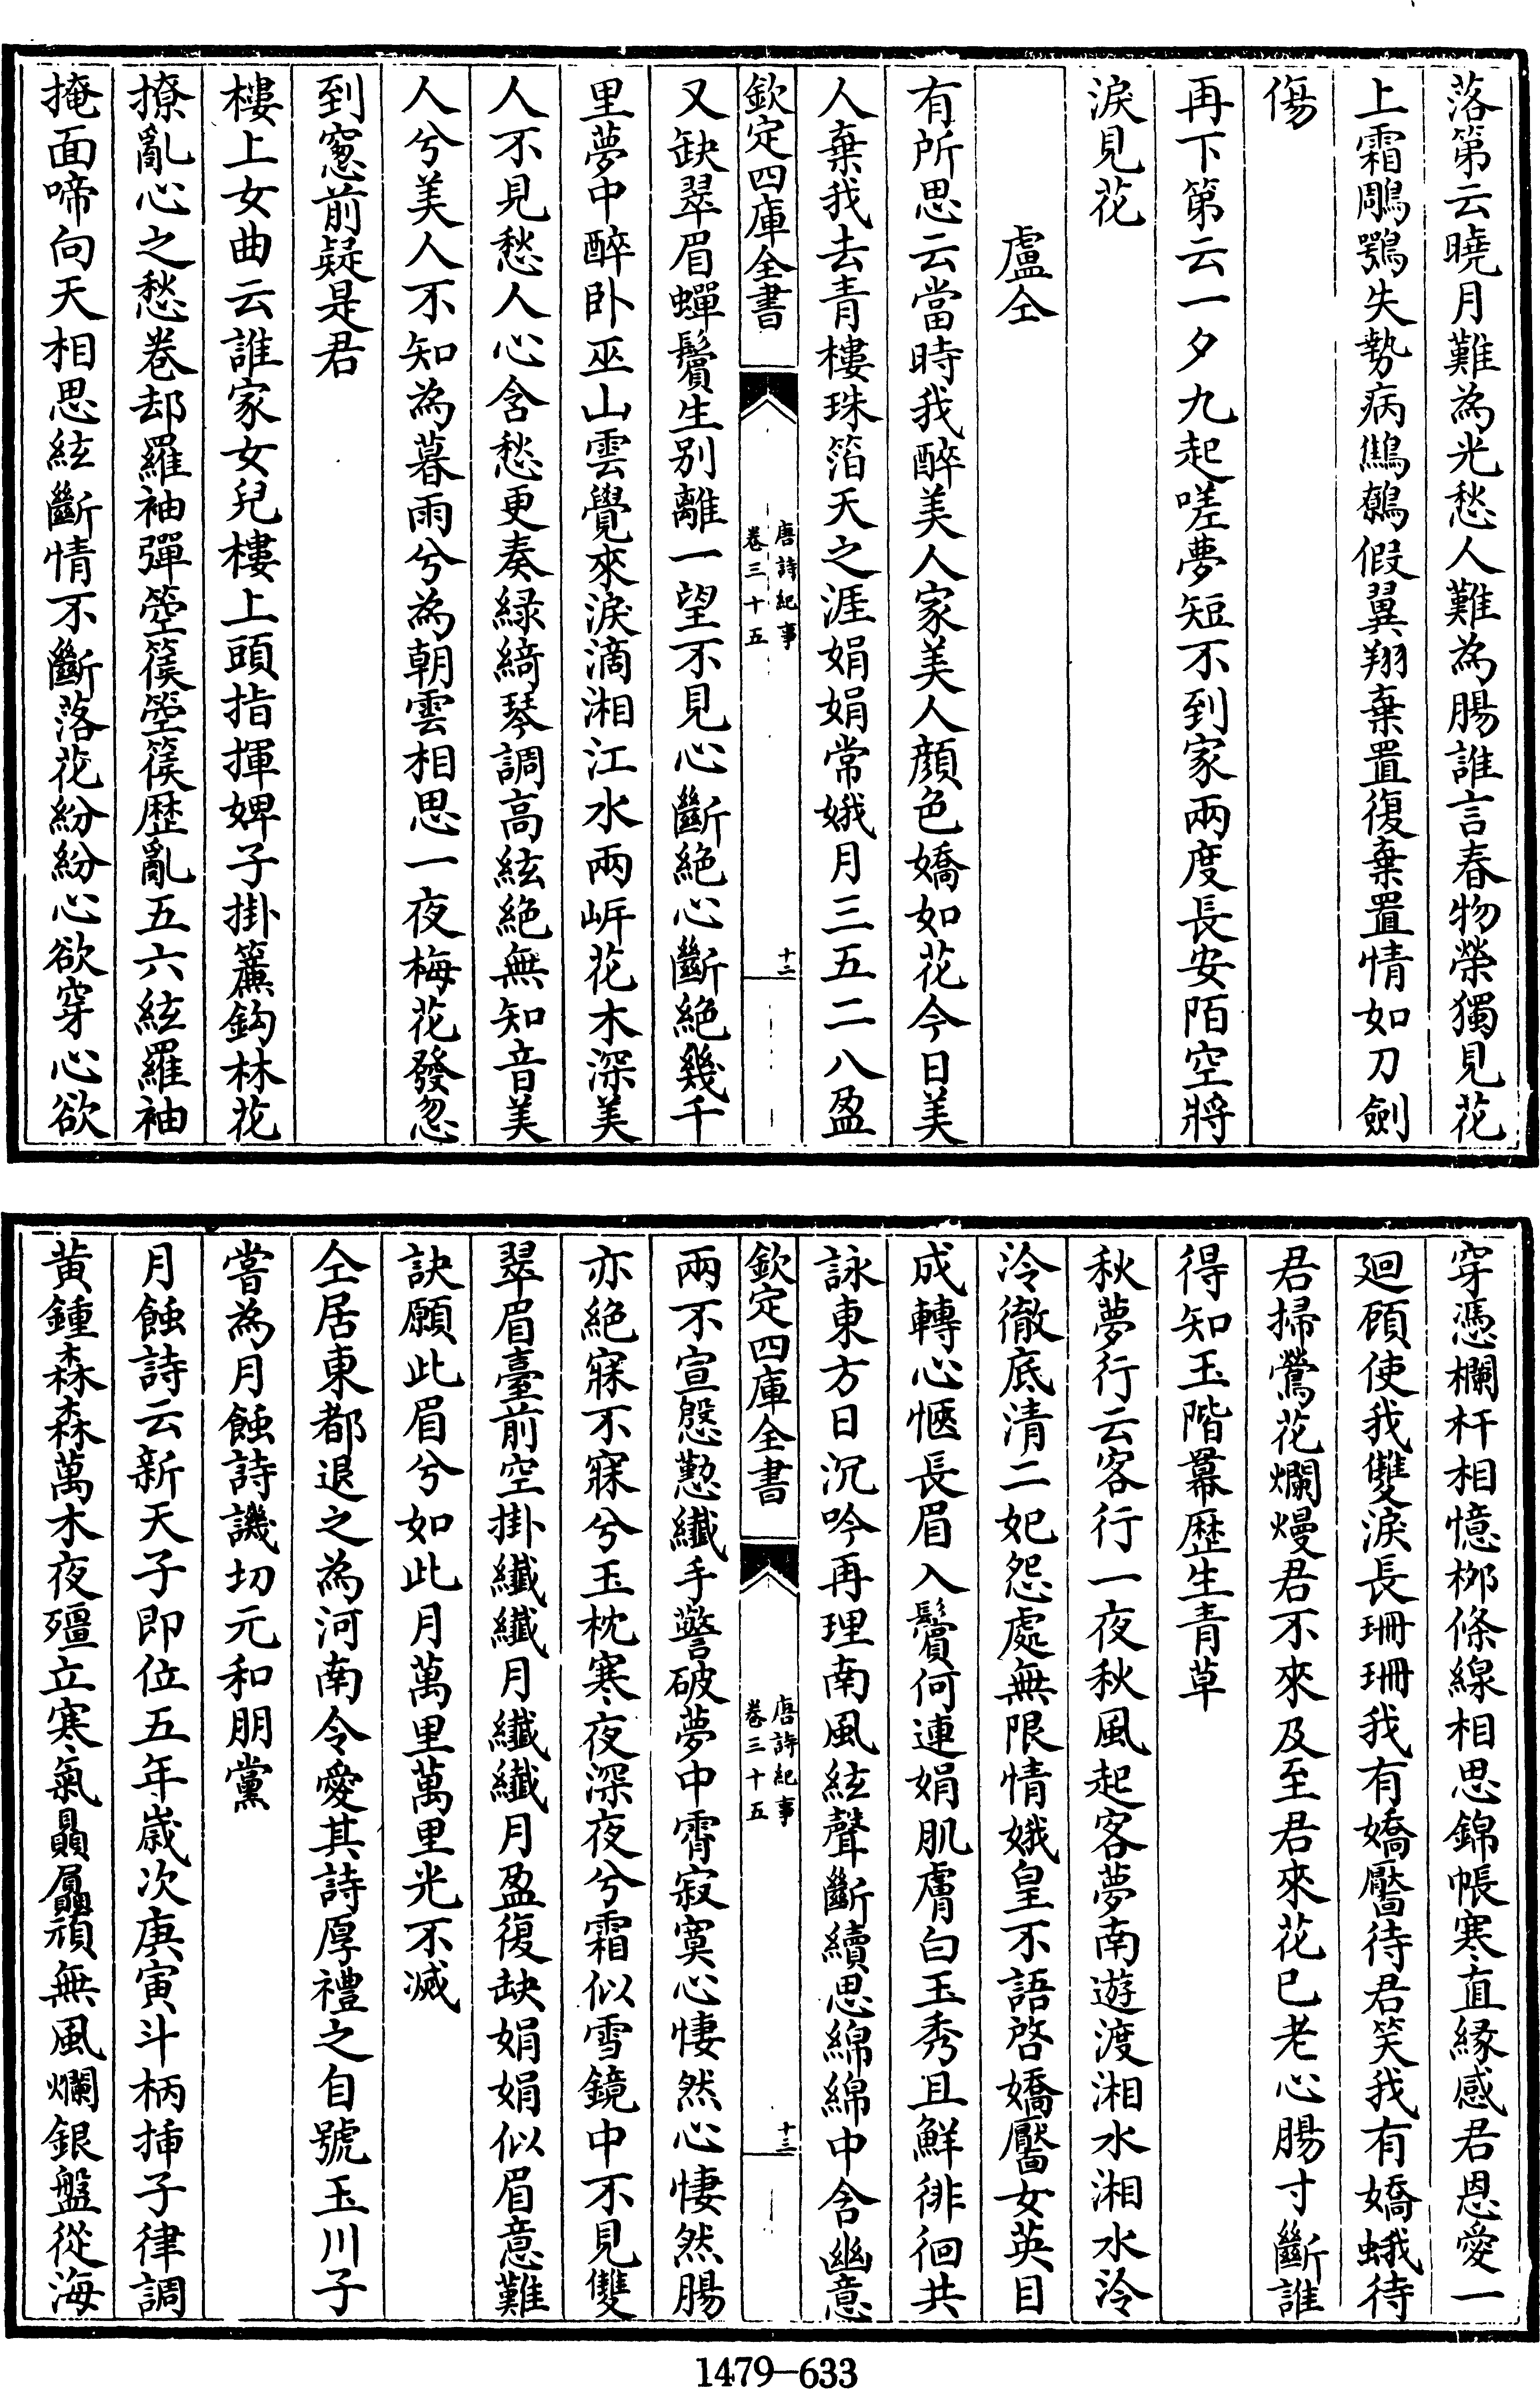 落第云曉月難為光愁人難為腸誰言春物榮獨見花
上霜鵰鶚失勢病鷦鷯假翼翔棄置復棄置情如刀劍
傷
再下第云一夕九起嗟夢短不到家兩度長安陌空將
淚見花
盧仝
有所思云當時我醉美人家美人顔色嬌如花今日美
人棄我去青樓珠箔天之涯娟娟常娥月三五二八盈
欽定四庫全書
唐詩紀事
卷三十五
十二
又缺翠眉蟬鬢生别離一望不見心斷絶心斷絶幾千
里夢中醉卧巫山雲覺來淚滴湘江水兩岍花木深美
人不見愁人心含愁更奏緑綺琴調高絃絶無知音美
人兮美人不知為暮雨兮為朝雲相思一夜梅花發忽
到窻前疑是君
樓上女曲云誰家女兒樓上頭指揮婢子掛簾鈎林花
撩亂心之愁卷却羅袖彈箜篌箜篌歴亂五六絃羅袖
掩面啼向天相思絃斷情不斷落花紛紛心欲穿心欲
穿憑欄杆相憶栁條線相思錦帳寒直緣感君恩愛一
廻顧使我雙淚長珊珊我有嬌靨待君笑我有嬌蛾待
君掃鶯花爛熳君不來及至君來花已老心腸寸斷誰
得知玉階羃歴生青草
秋夢行云客行一夜秋風起客夢南遊渡湘水湘水泠
泠徹底清二妃怨處無限情娥皇不語啓嬌靨女英目
成轉心愜長眉入鬢何連娟肌膚白玉秀且鮮徘徊共
詠東方日沉吟再理南風絃聲斷續思綿綿中含幽意
欽定四庫全書
唐詩紀事
卷三十五
十三
兩不宣慇懃纎手驚破夢中霄寂寞心悽然心悽然腸
亦絶寐不寐兮玉枕寒夜深夜兮霜似雪鏡中不見雙
翠眉臺前空掛纎纎月纎纎月盈復缺娟娟似眉意難
訣願此眉兮如此月萬里萬里光不滅
仝居東都退之為河南令愛其詩厚禮之自號玉川子
嘗為月蝕詩譏切元和朋黨
月蝕詩云新天子即位五年嵗次庚寅斗柄揷子律調
黄鍾森森萬木夜殭立寒氣贔屭頑無風爛銀盤從海
1479-633